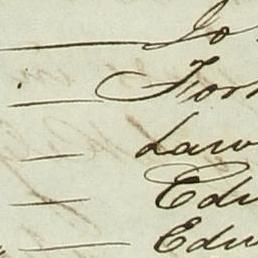 Jo
— For
— Law
— Edw
— Edw